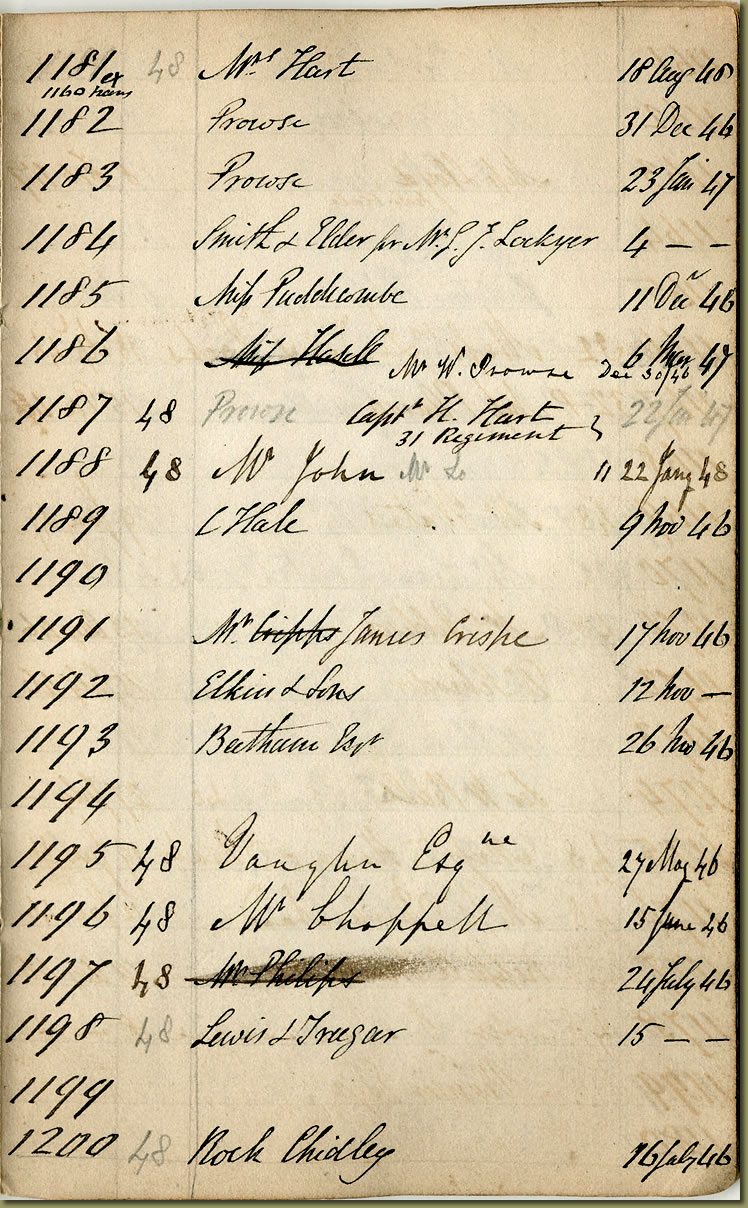 1181 ex 48 Mrs Hart 18 Aug 48
1160 hams
1182 Prowse 31 Dec 46
1183 Prowse 23 Jan 47
1184 Smith & Elder for Mr. Lockyer 4 — —
1185 Miss Puddicombe 11 Decr 46
1186 Miss Hasell Mr W. Prowse 6 Mar 47 Dec 30/46
1187 48 Prowse Captn H. Hart 22 Jan 47
31 Regiment
1188 48 Mr John Mr Lo 11 22 Jany 48
1189 C Hale 9 Nov 46
1190
1191 Mr Cripps James Crispe 17 Nov 46
1192 Elkin & Sons 12 Nov —
1193 Batham Esqr 26 Nov 46
1194
1195 48 Vaughn Esqre 27 May 46
1196 48 Mr Choppell 15 June 46
1197 48 Mr Philips 24 July 46
1198 48 Lewis & Treegar 15 — —
1199
1200 48 Rock Chidley 16 July 46